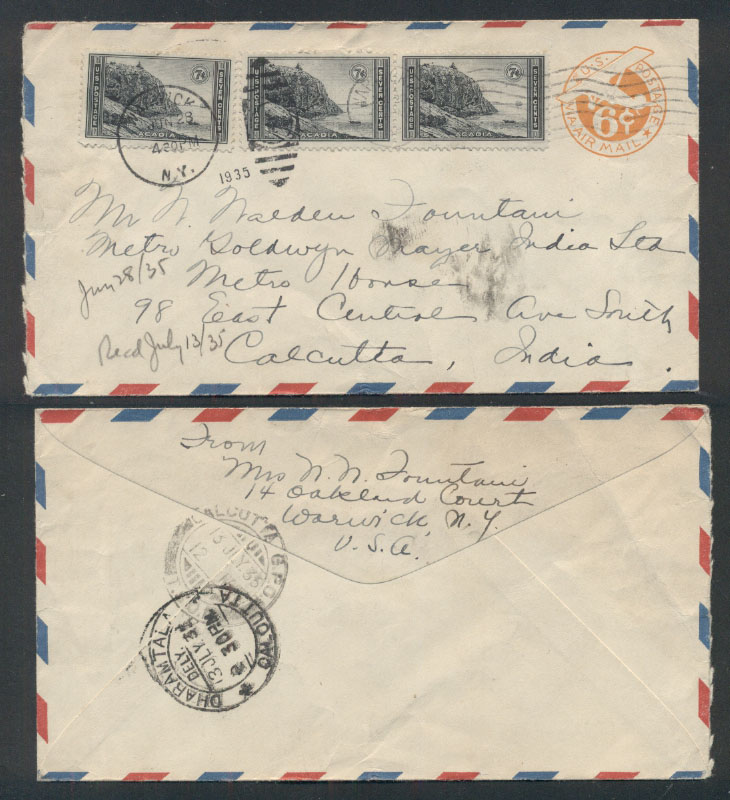 U.S. POSTAGE
7¢
SEVER CENTS
ACADIA
U.S. POSTAGE
7¢
SEVEN CENTS
ACADIA
U.S. POSTAGE
7¢
SEVEN CENTS
ACADIA
U.S. POSTAGE
6¢
VIA AIR MAIL
WARWICK
JUN 28
4 30 PM
N.Y.
1935
Mr N. Walden Fountain
Metro Goldwyn Mayer India Ltd
Jun 28/35
Metro House
98 East Central Ave South
Recd July 13/35
Calcutta, India.
From
Mrs N. N. Fountain
14 Oakland Court
Warwick N.Y.
U.S.A.
CALCUTTA G.P.O.
13 JLY 35
12
DHARAMTALA CALCUTTA
DELY
13 JLY 35
2 30PM